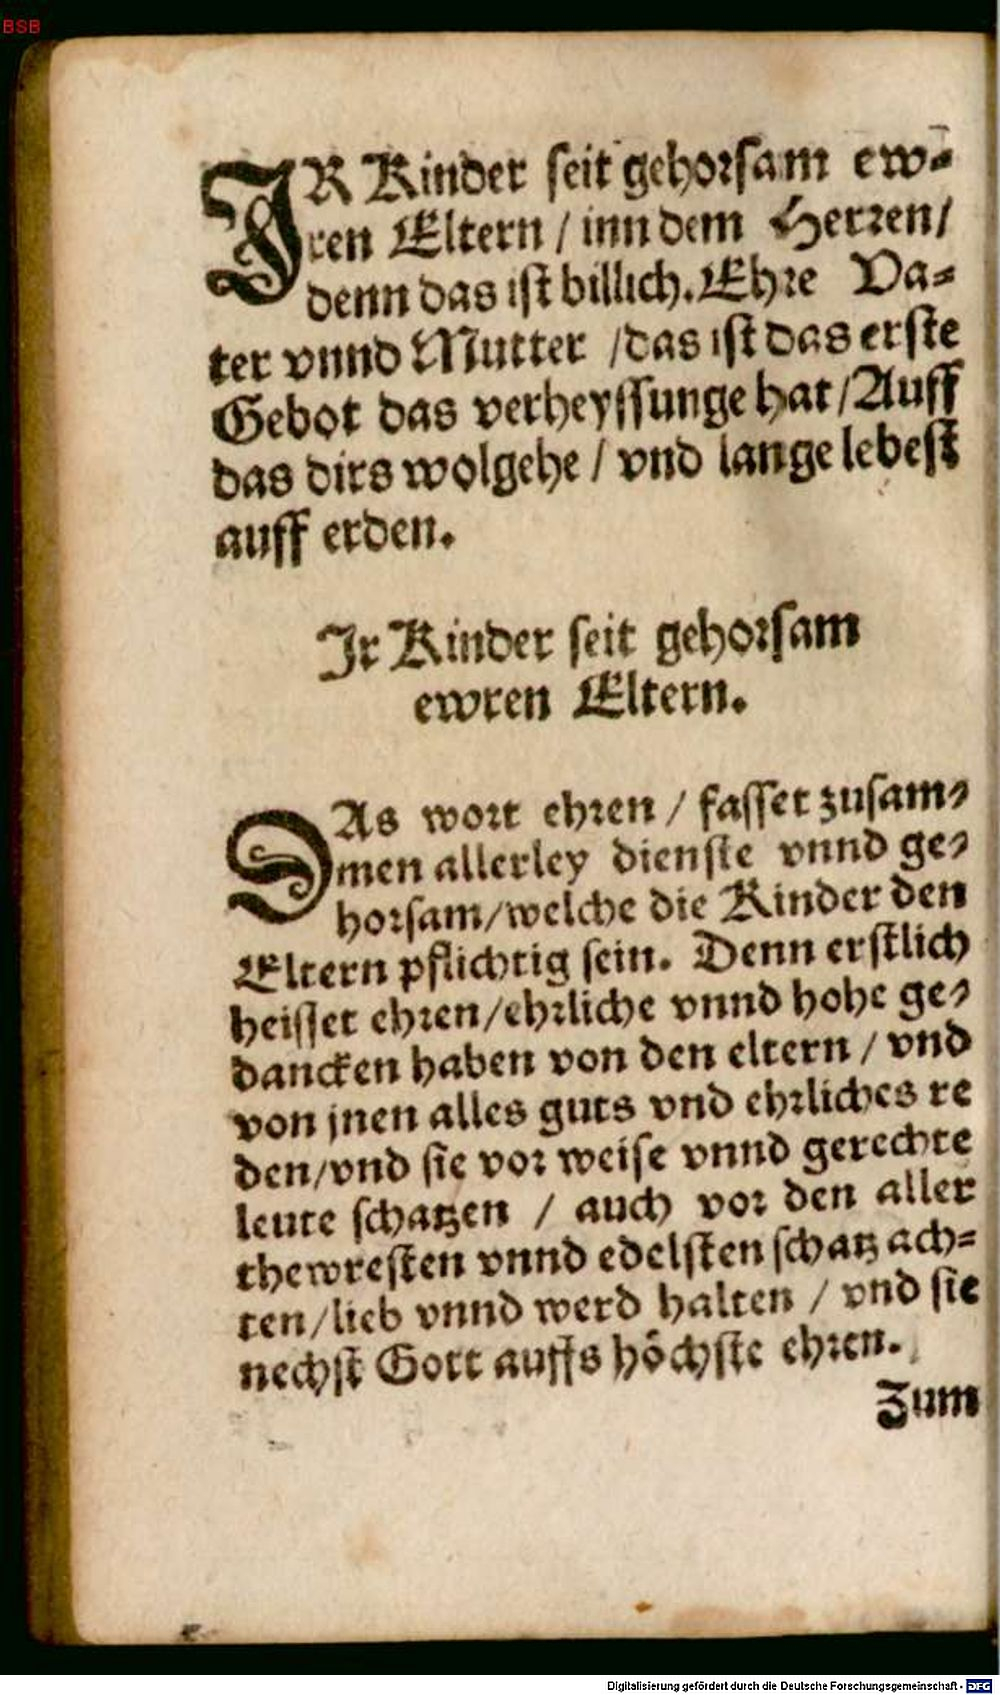 BSB
IR Kinder seit gehorsam ew-
ren Eltern / inn dem Herren/
denn das ist billich. Ehre Va-
ter vnnd Mutter /das ist das erste
Gebot das verheyssunge hat/Auff
das dirs wolgehe / vnd lange lebest
auff erden.
Ir Kinder seit gehorsam
ewren Eltern.
DAs wort ehren / fasset zusam-
men allerley dienste vnnd ge-
horsam/welche die Kinder den
Eltern pflichtig sein. Denn erstlich
heisset ehren/ehrliche vnnd hohe ge-
dancken haben von den eltern / vnd
von jnen alles guts vnd ehrliches re
den/vnd sie vor weise vnnd gerechte
leute schatzen / auch vor den aller
thewresten vnnd edelsten schatz ach-
ten/lieb vnnd werd halten / vnd sie
nechst Gott auffs höchste ehren.
Zum
Digitalisierung gefördert durch die Deutsche Forschungsgemeinschaft - DFG